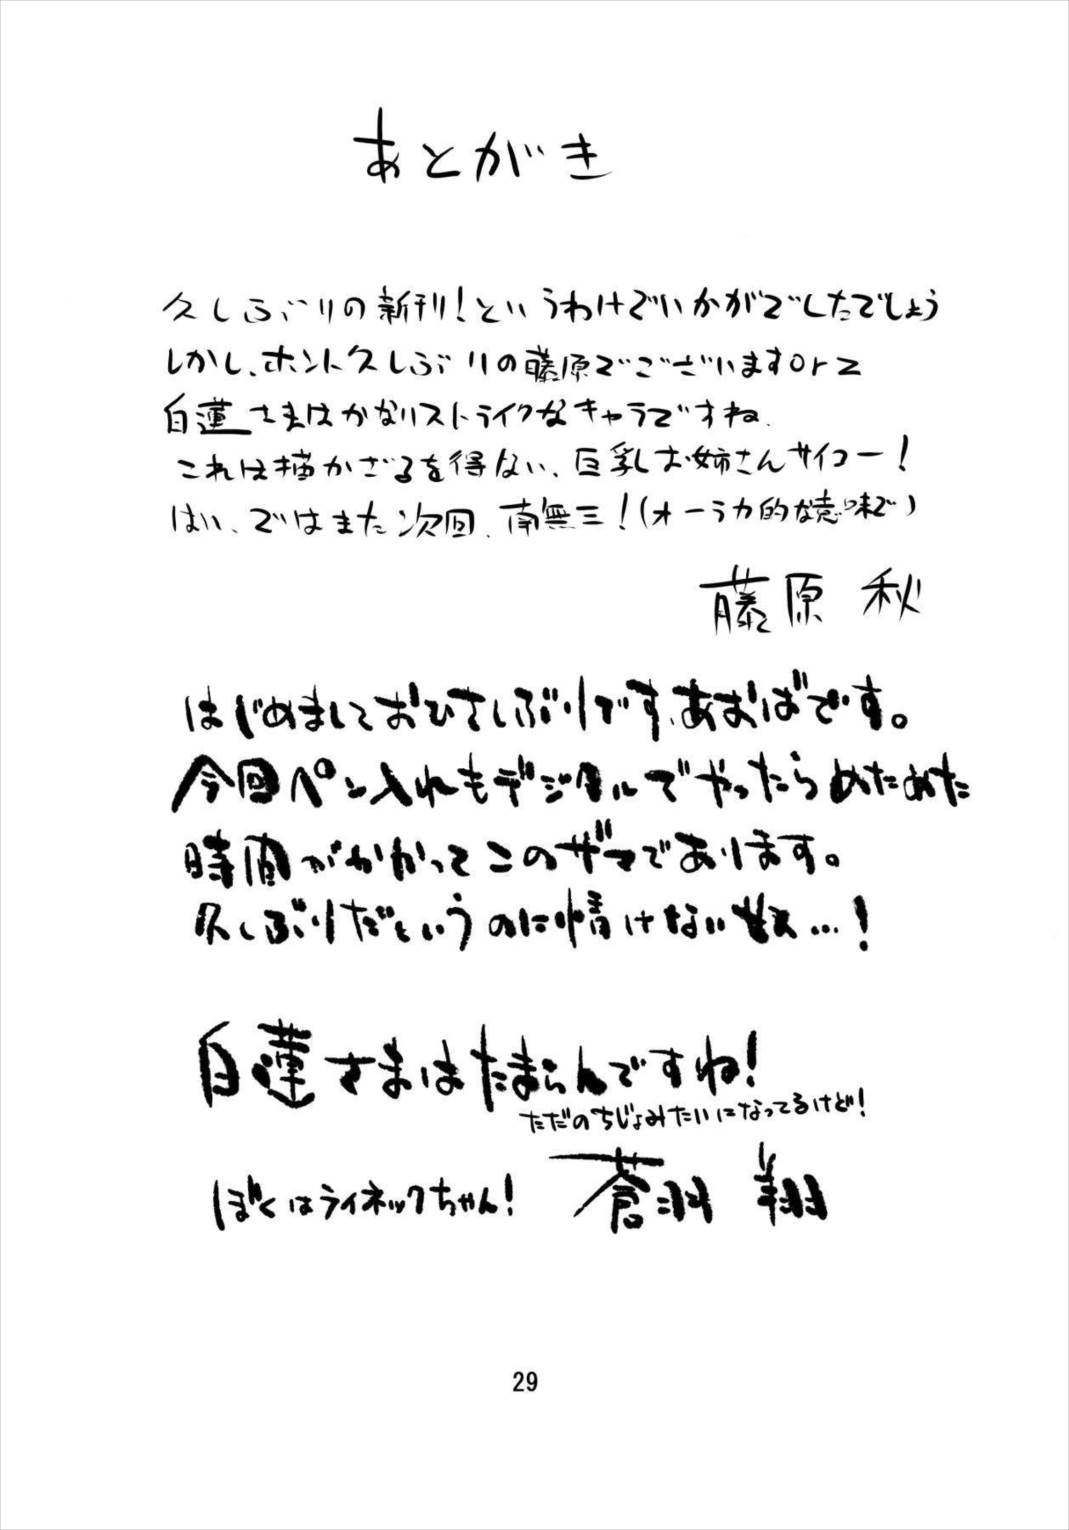 あとがき
久しぶりの新刊!というわけでいかがでしたでしょう
しかし、ホント久しぶりの藤原でございますorz
白蓮さまはかなりストライクなキャラですね。
これは描かざるを得ない、巨乳お姉さんサイコー!
はい、ではまた次回、南無三!(オーラカ的な意味で)
藤原 秋
はじめましておひさしぶりです、あおばです。
今回ペン入れもデジタルでやったらめためた
時間がかかってこのザマであります。
久しぶりだというのに情けない数…!
白蓮さまはたまらんですね!
ただのちじょみたいになってるけど!
ぼくはライネックちゃん!
蒼羽 翔
29